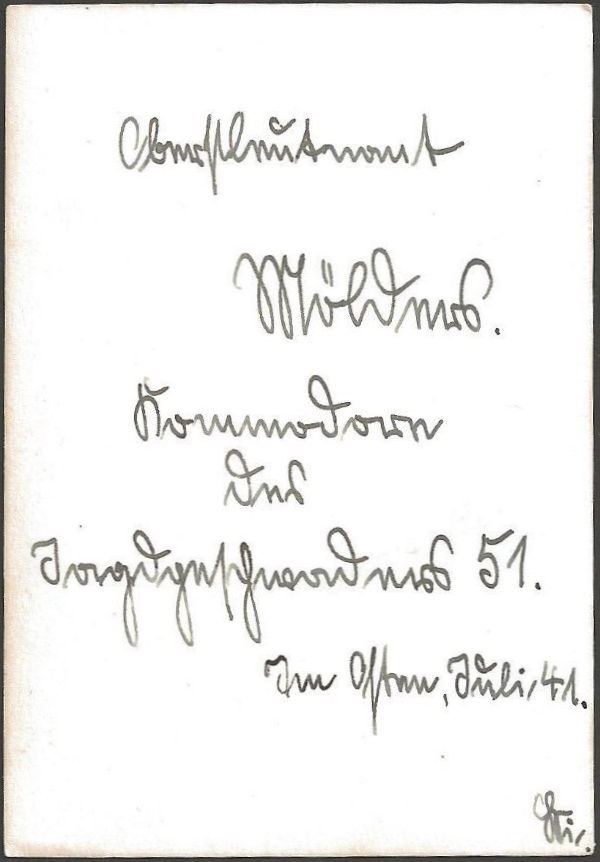 Oberstleutnant
Mölders.
Kommodore
des
Jagdgeschwaders 51.
Im Osten, Juli 41.